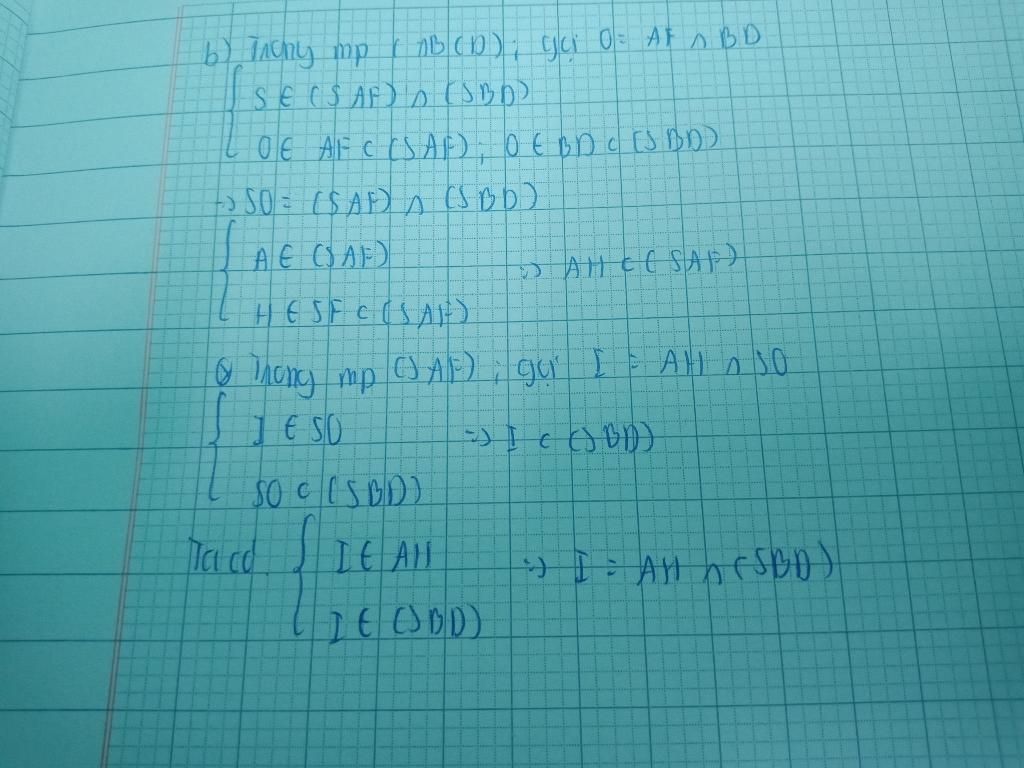 b) Trong mp (ABCD), gọi O = AF ∩ BD
S ∈ (SAF) ∩ (SBD)
O ∈ AF ⊂ (SAF), O ∈ BD ⊂ (SBD)
=> SO = (SAF) ∩ (SBD)
A ∈ (SAF) => AH ⊂ (SAF)
H ∈ SF ⊂ (SAF)
Trong mp (SAF), gọi I = AH ∩ SO
I ∈ SO => I ⊂ (SBD)
SO ⊂ (SBD)
Ta có I ∈ AH => I = AH ∩ (SBD)
I ∈ (SBD)